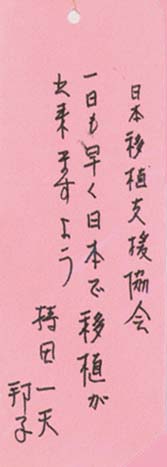 日本移植支援協会
一日も早く日本で移植が
出来ますよう
持田一天
邦子